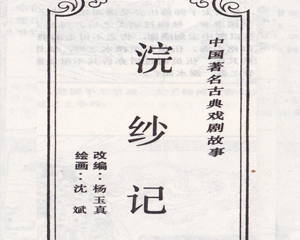 中国著名古典戏剧故事
浣纱记
改编：杨玉真
绘画：沈斌